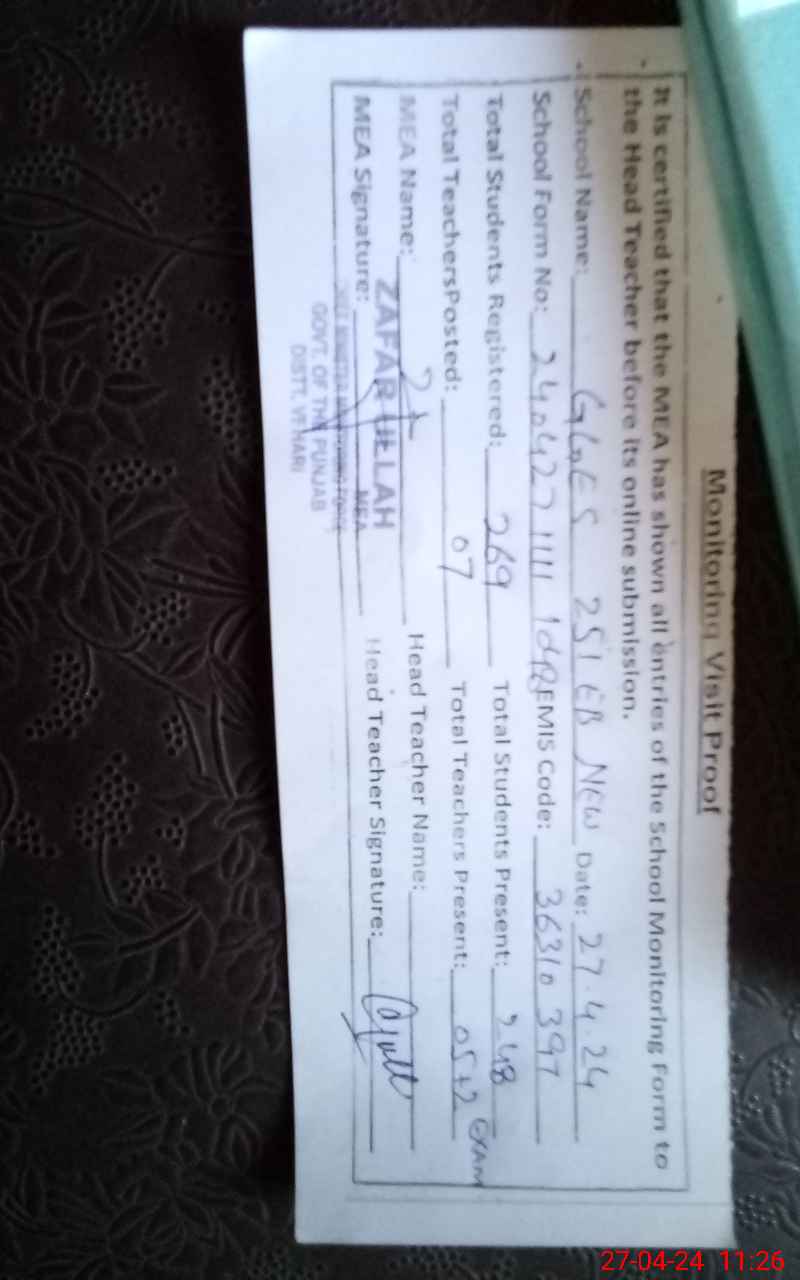 Monitoring Visit Proof
It is certified that the MEA has shown all entries of the School Monitoring Form to
the Head Teacher before its online submission.
School Name: GGES 251 EB NEW Date: 27.4.24
School Form No: EMIS Code: 36310397
Total Students Registered: 269 Total Students Present: 248
Total TeachersPosted: 07 Total Teachers Present: 05+2 EXAM
MEA Name: Head Teacher Name:
ZAFAR ULLAH
MEA Signature: MEA Head Teacher Signature:
GOVT. OF THE PUNJAB
DISTT. VEHARI
27-04-24 11:26